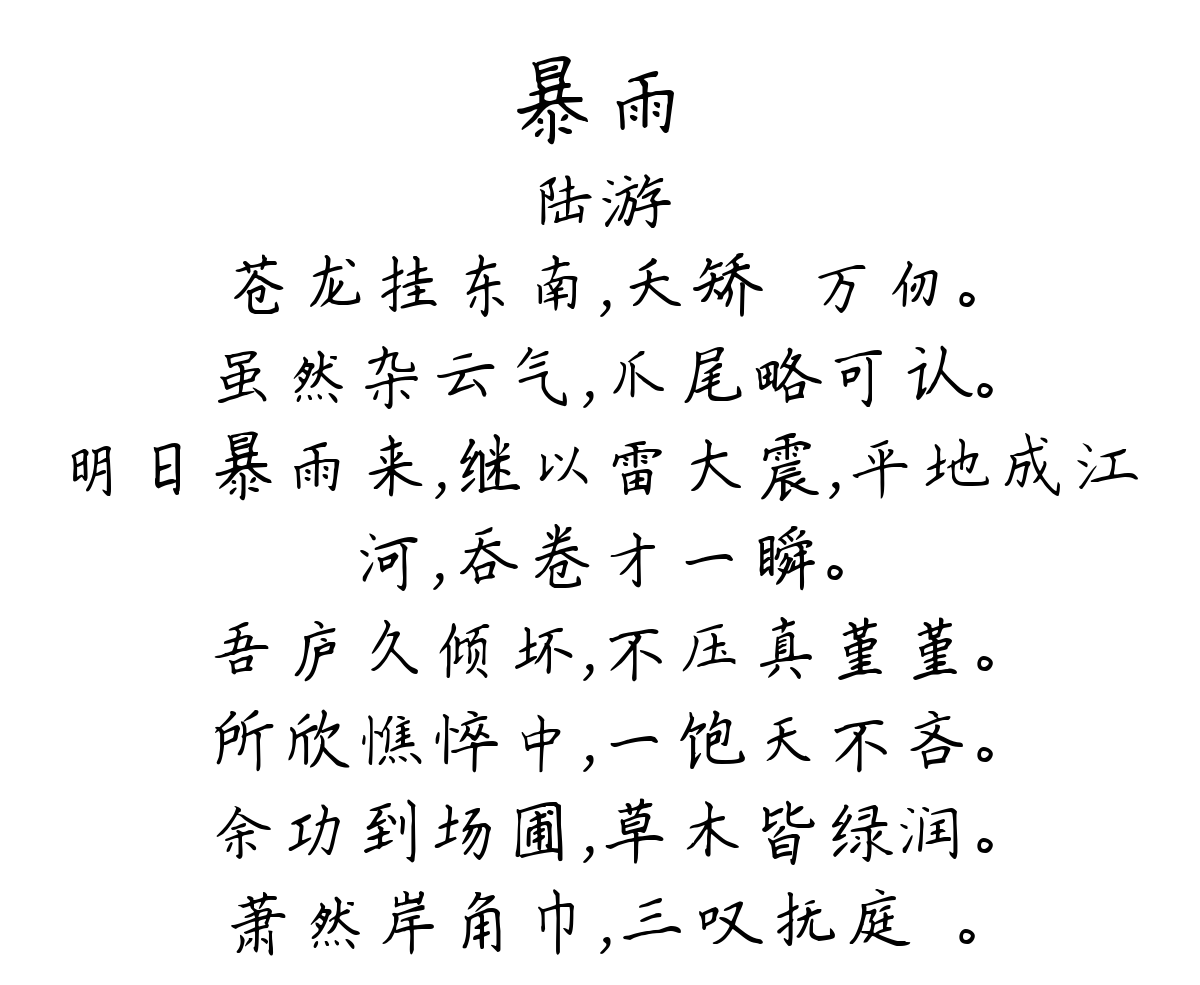 暴雨
陆游
苍龙挂东南,夭矫 万仞。
虽然杂云气,爪尾略可认。
明日暴雨来,继以雷大震,平地成江
河,吞卷才一瞬。
吾庐久倾坏,不压真堇堇。
所欣憔悴中,一饱天不吝。
余功到场圃,草木皆绿润。
萧然岸角巾,三叹抚庭 。